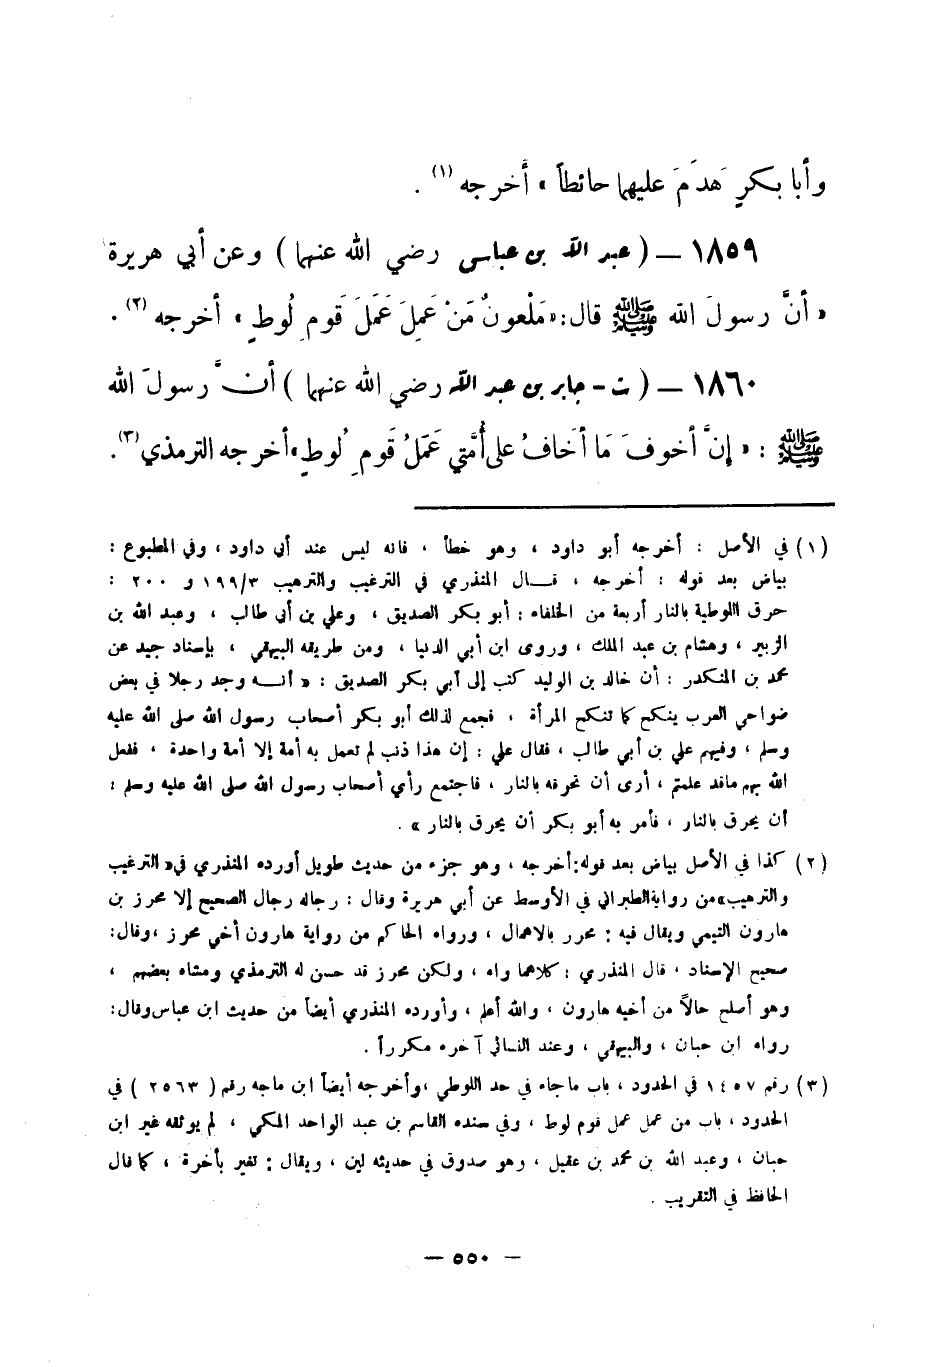 وأبا بكرٍ هدَمَ عليهما حائطاً » أخرجه (١) .
١٨٥٩ – ( عبد الله بن عباس رضي الله عنهما ) وعن أبي هريرة
« أنَّ رسولَ الله ﷺ قال: « مَلْعونٌ مَنْ عَمِلَ عَمَلَ قَومِ لُوطٍ » أخرجه (٢) .
١٨٦٠ – ( ت - جابر بن عبد الله رضي الله عنهما ) أنَّ رسولَ الله
ﷺ : « إنَّ أخوفَ مَا أخَافُ على أُمَّتي عَمَلُ قَومِ لُوطٍ » أخرجه الترمذي (٣) .
(١) في الأصل : أخرجه أبو داود ، وهو خطأ ، فانه ليس عند أبي داود ، وفي المطبوع :
بياض بعد قوله : أخرجه ، قــال المنذري في الترغيب والترهيب ١٩٩/٣ و ٢٠٠ :
حرق اللوطية بالنار أربعة من الخلفاء : أبو بكر الصديق ، وعلي بن أبي طالب ، وعبد الله بن
الزبير ، وهشام بن عبد الملك ، وروى ابن أبي الدنيا ، ومن طريقه البيهقي ، بإسناد جيد عن
محمد بن المنكدر : أن خالد بن الوليد كتب إلى أبي بكر الصديق : « أنــه وجد رجلا في بعض
ضواحي العرب ينكح كما تنكح المرأة ، فجمع لذلك أبو بكر أصحاب رسول الله صلى الله عليه
وسلم ، وفيهم علي بن أبي طالب ، فقال علي : إن هذا ذنب لم تعمل به أمة إلا أمة واحدة ، ففعل
الله بهم ماقد علمتم ، أرى أن نحرقه بالنار ، فاجتمع رأي أصحاب رسول الله صلى الله عليه وسلم :
أن يحرق بالنار ، فأمر به أبو بكر أن يحرق بالنار » .
(٢) كذا في الأصل بياض بعد قوله: أخرجه ، وهو جزء من حديث طويل أورده المنذري في « الترغيب
والترهيب » من رواية الطبراني في الأوسط عن أبي هريرة وقال : رجاله رجال الصحيح إلا محرز بن
هارون التيمي ويقال فيه : محرر بالاهمال ، ورواه الحاكم من رواية هارون أخي محرز ، وقال:
صحيح الإسناد ، قال المنذري : كلاهما واه ، ولكن محرز قد حسن له الترمذي ومشاه بعضهم ،
وهو أصلح حالاً من أخيه هارون ، والله أعلم ، وأورده المنذري أيضاً من حديث ابن عباس وقال:
رواه ابن حبان ، والبيهقي ، وعند النسائي آخره مكرراً .
(٣) رقم ١٤٥٧ في الحدود ، باب ما جاء في حد اللوطي ، وأخرجه أيضاً ابن ماجه رقم ( ٢٥٦٣ ) في
الحدود ، باب من عمل عمل قوم لوط ، وفي سنده القاسم بن عبد الواحد المكي ، لم يوثقه غير ابن
حبان ، وعبد الله بن محمد بن عقيل ، وهو صدوق في حديثه لين ، ويقال : تغير بأخرة ، كما قال
الحافظ في التقريب .
– ٥٥٠ –